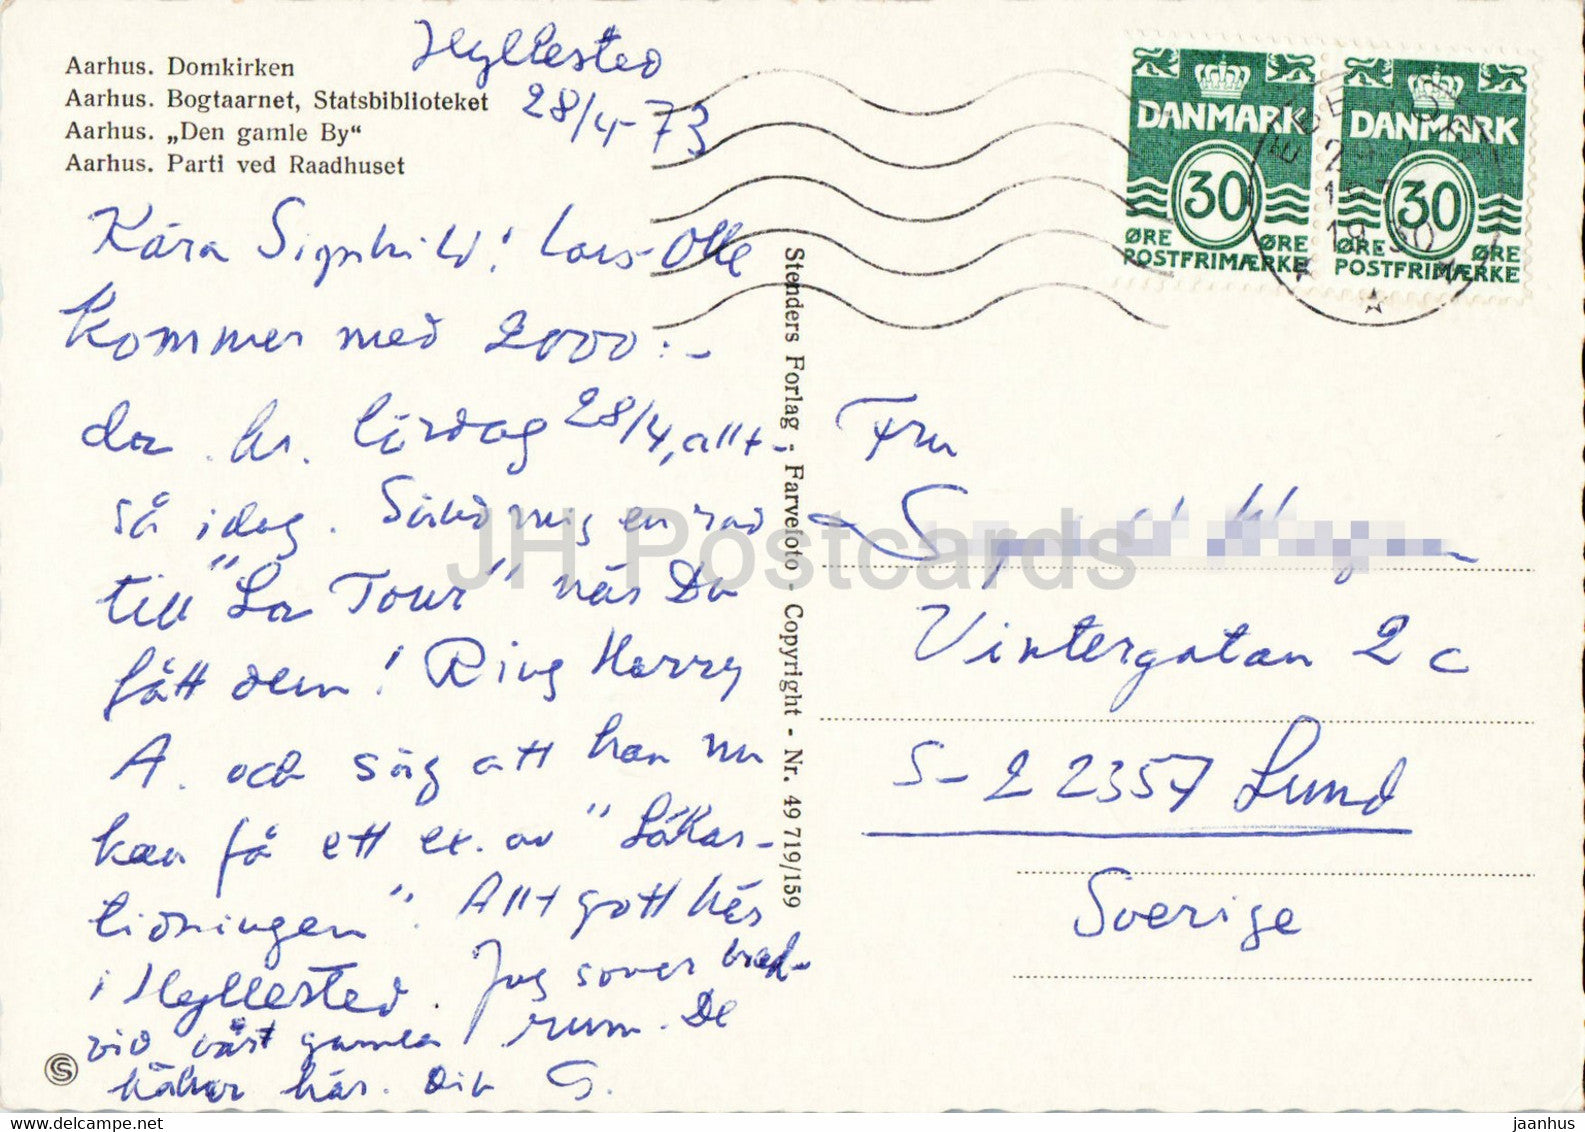 Aarhus. Domkirken
Aarhus. Bogtaarnet, Statsbiblioteket
Aarhus. „Den gamle By“
Aarhus. Parti ved Raadhuset
Hyllested
28/4-73
Kära Signhild! Lars-Olle
kommer med 2000:-
da. kr. lördag 28/4, allt-
så idag. Sänd mig en rad
till "La Tour" när Du
fått dem! Ring Harry
A. och säg att han nu
kan få ett ex. av "Läkar-
tidningen". Allt gott här
i Hyllested. Jag sover
vid vårt gamla rum. De
hälsar här. Din G.
Stenders Forlag - Farvefoto - Copyright - Nr. 49 719/159
DANMARK
30
ØRE ØRE
POSTFRIMÆRKE
DANMARK
30
ØRE ØRE
POSTFRIMÆRKE
EBELTOFT
Fru
Vintergatan 2 c
S-22357 Lund
Sverige
JH Postcards
www.delcampe.net
jaanhus